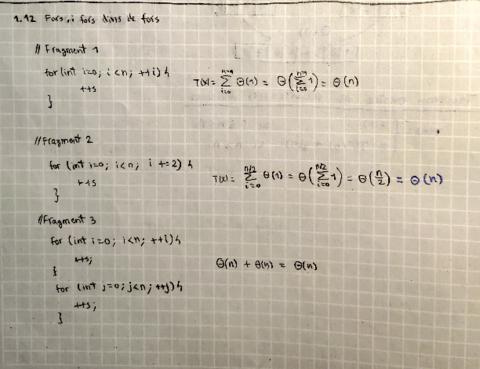 1.12 Fors, i fors dins de fors
// Fragment 1
for(int i=0; i<n; ++i){
++s
}
T(x)= \sum_{i=0}^{n-1} Θ(1) = Θ(\sum_{i=0}^{n-1} 1) = Θ(n)
//Fragment 2
for (int i=0; i<n; i+=2){
++s
}
T(x)= \sum_{i=0}^{n/2} Θ(1) = Θ(\sum_{i=0}^{n/2} 1) = Θ(n/2) = Θ(n)
//Fragment 3
for (int i=0; i<n; ++i){
++s;
}
for (int j=0; j<n; ++j){
++s;
}
Θ(n) + Θ(n) = Θ(n)